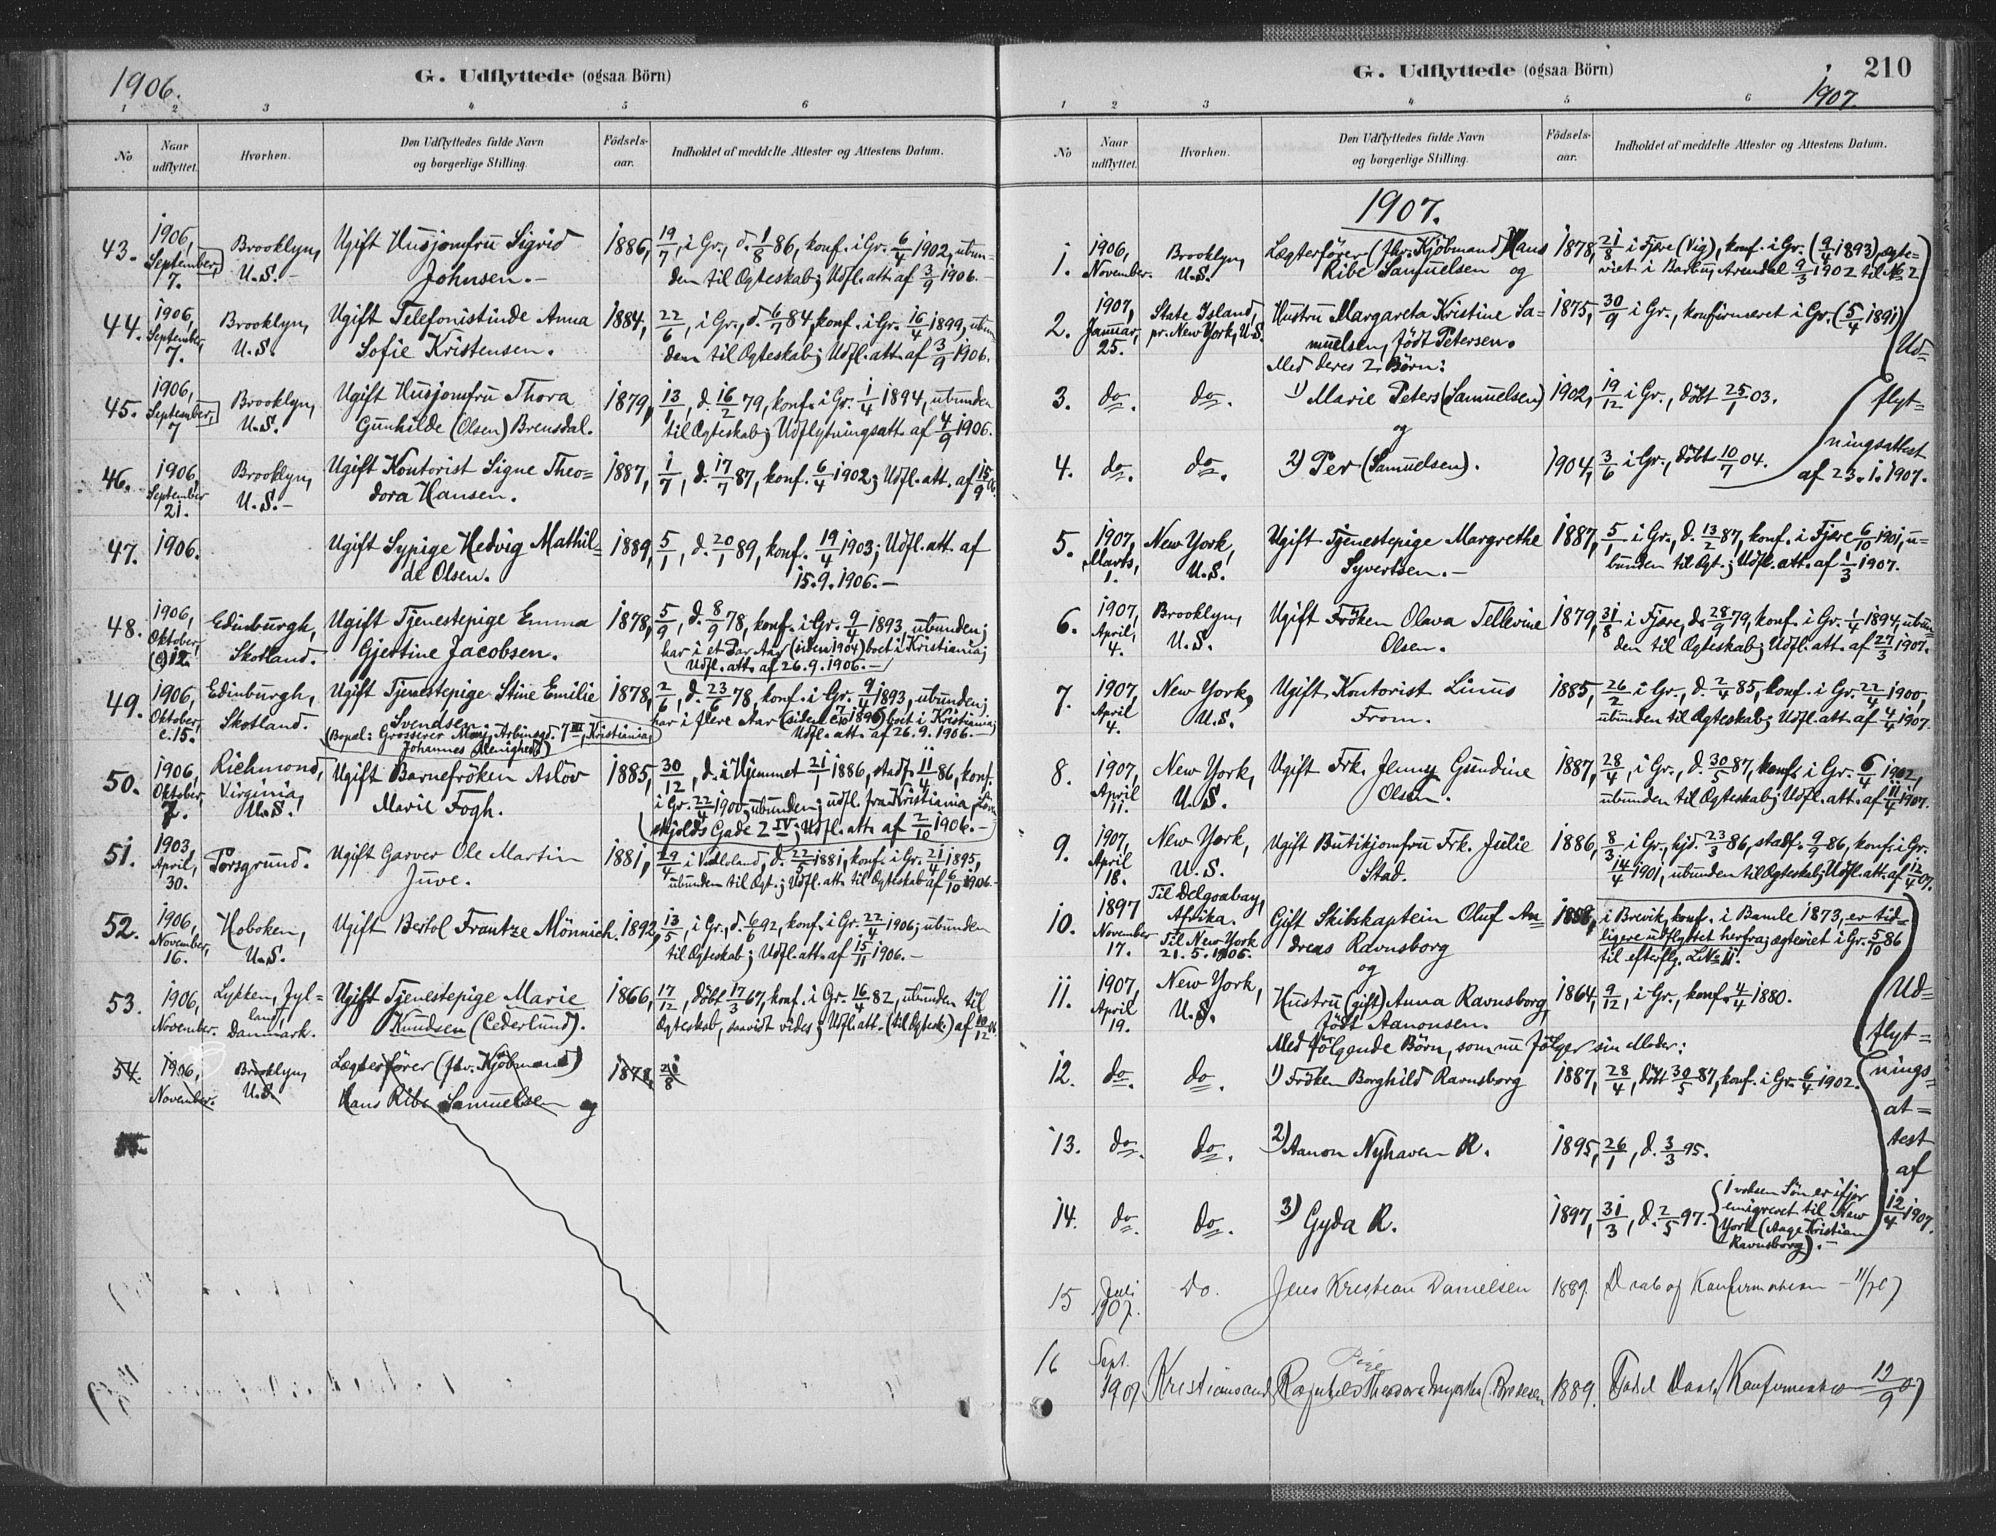 1906.
G. Udflyttede (ogsaa Börn)
1 2 3 4 5 6
No
Naar udflyttet.
Hvorhen.
Den Udflyttedes fulde Navn og borgerlige Stilling.
Födsels-aar.
Indholdet af meddelte Attester og Attestens Datum.
43. 1906, September, 7. Brooklyn, U.S.- Ugift Husjomfru Sigrid Johnsen.- 1886, 19/7, i Gr., d. 1/8 86, konf. i Gr. 6/4 1902, ubun-
den til Ægteskab; Udfl. att. af 3/9 1906.-
44. 1906, September, 7. Brooklyn, U.S. Ugift Telefonistinde Anna Sofie Kristensen. 1884, 22/6, i Gr., d. 6/7 84, konf. i Gr. 16/4 1899, ubun
den til Ægteskab; Udfl. att. af 3/9 1906.
45. 1906, September, 7 Brooklyn, U.S. Ugift Husjomfru Thora Gunhilde (Olsen) Brensdal. 1879, 13/1, d. 16/2 79, konf. i Gr. 1/4 1894, ubunden
til Ægteskab; Udflytningsatt. af 4/9 1906.
46. 1906, September 21. Brooklyn, U.S.- Ugift Kontorist Signe Theo-
dora Hansen. 1887, 1/7, d. 17/7 87, konf. 6/4 1902; Udfl. att. af 15/9 06.
47. 1906. Ugift Sypige Hedvig Mathil-
de Olsen. 1889, 5/1, d. 20/1 89, konf. 19/4 1903; Udfl. att. af
15.9.1906.-
48. 1906, Oktober, 12. Edinburgh, Skotland. Ugift Tjenestepige Emma Gjertine Jacobsen. 1878, 5/9, d. 8/9 78, konf. i Gr. 9/4 1893, ubunden;
har i et Par Aar (siden 1904) boet i Kristiania;
Udfl. att. af 26.9.1906.-
49. 1906, Oktober, c. 15. Edinburgh, Skotland. Ugift Tjenestepige Stine Emilie Svendsen 1878, 2/6, d. 23/6 78, konf. i Gr. 9/4 1893, ubunden;
(Bopæl: Grosserer Arbinsgd. 7 III, Kristiania,
Johannes Menighed)
har i flere Aar (siden 1896) boet i Kristiania;
Udfl. att. af 26.9.1906.-
50. 1906, Oktober, 7. Richmond, Virginia, U.S. Ugift Barnefröken Aslöv Marie Fogh. 1885, 30/12, d. i Hjemmet 21/1 1886, stadf. 11/4 86, konf.
i Gr. 22/4 1900, ubunden; udfl. fra Kristiania,
skjolds Gade 2 IV; Udfl. att. af 2/10 1906.-
51. 1903, April, 30. Porsgrund. Ugift Garver Ole Martin Juve. 1881, 29/4 i Vestloland, d. 22/5 1881, konf. i Gr. 21/4 1895,
ubunden til Ægt.; Udfl. att. til Ægteskab af 6/10 1906.-
52. 1906, November, 16. Hoboken, U.S. Ugift Bertol Frantze Mönnich. 1892, 13/5, i Gr., d. 6/6 92, konf. i Gr. 22/4 1906; ubunden
til Ægteskab; Udfl. att. af 15/11 1906.-
53. 1906, November. Lykken, Jyl-
land, Danmark. Ugift Tjenestepige Marie Knudsen (Cederlund). 1866, 17/12, döbt 17/3 67, konf. i Gr. 16/4 82, ubunden til
Ægteskab, saavidt vides; Udfl. att. (til Ægtesk.) af 10/12 06.
54. 1906, November. Brooklyn, U.S. Lægterförer (fhv. Kjöbmand) Hans Ribe Samuelsen og 1878, 21/8
G. Udflyttede (ogsaa Börn)
210
1907.
1 2 3 4 5 6
No
Naar udflyttet.
Hvorhen.
Den Udflyttedes fulde Navn og borgerlige Stilling.
Födsels-aar.
Indholdet af meddelte Attester og Attestens Datum.
1907.
1. 1906, November. Brooklyn, U.S. Lægterförer (fhv. Kjöbmand) Hans Ribe Samuelsen og 1878, 21/8 i Fjære (Vig), konf. i Gr. (9/4 1893), ægte-
viet i Barbu, Arendal 9/3 1902 til No 2
2. 1907, Januar, 25. State Island, pr. New York, U.S. Hustru Margareta Kristine Sa-
muelsen, födt Petersen. 1875, 30/9 i Gr., konfirmeret i Gr. (5/4 1891)
Med deres 2 Börn:
3. do. do. 1) Marie Peters (Samuelsen) 1902, 19/12 i Gr., döbt 25/1 03.
og
4. do. do. 2) Per (Samuelsen). 1904, 3/6 i Gr., döbt 10/7 04.
Ud-
flyt-
ningsattest
af 23.1.1907.
5. 1907, Marts, 1. New York, U.S. Ugift Tjenestepige Margrethe Syvertsen.- 1887, 5/1 i Gr., d. 13/2 87, konf. i Fjære 6/10 1901, u-
bunden til Ægt.; Udfl. att. af 1/3 1907.
6. 1907, April, 4. Brooklyn, U.S. Ugift Fröken Olava Tellevine Olsen. 1879, 31/8 i Fjære, d. 28/9 79, konf. i Gr. 1/4 1894, ubun-
den til Ægteskab; Udfl. att. af 27/3 1907.
7. 1907, April 4. New York, U.S. Ugift Kontorist Linus From. 1885, 26/2 i Gr., d. 2/4 85, konf. i Gr. 22/4 1900,
ubunden til Ægteskab; Udfl. att. af 4/4 1907.
8. 1907, April 11. New York, U.S. Ugift Frk. Jenny Gundine Olsen. 1887, 28/4, i Gr., d. 30/5 87, konf. i Gr. 6/4 1902,
ubunden til Ægteskab; Udfl. att. af 11/4 1907.
9. 1907, April 18. New York, U.S. Ugift Butikjomfru Frk. Julie Stad. 1886, 8/3, i Gr., hjd. 23/3 86, stadf. 9/9 86, konf. i Gr.
14/4 1901, ubunden til Ægteskab; Udfl. att. af 12/4 07.
10. 1897 November 17. Til Delgoabay, Afrika. Til New York 21.5.1906. Gift Skibskaptein Oluf An-
dreas Ravnsborg 1858, i Brevik, konf. i Bamle 1873, er tid-
ligere udflyttet herfra; ægteviet i Gr. 5/10 86
til efterflg. L.No 11.
og
11. 1907, April 19. New York, U.S. Hustru (gift) Anna Ravnsborg, födt Aanonsen. 1864, 9/12, i Gr., konf. 4/4 1880.
Med fölgende Börn, som nu fölger sin Moder:
12. do. do. 1) Fröken Borghild Ravnsborg 1887, 28/4, döbt 30/5 87, konf. i Gr. 6/4 1902.
13. do. do. 2) Aanon Nyhaven R. 1895, 26/1, d. 3/3 95.
14. do. do. 3) Gyda R. 1897, 31/3, d. 2/5 97.
1 voksen Sön er ifjor
emigreret til New
York (Aage Kristian
Ravnsborg).-
Ud-
flyt-
nings-
at-
test
af
12/4 1907.
15 Juli 1907. Do. Jens Kristian Danielsen 1889. Daab og Konfirmation - 11/7 07
16 Sept. 1907 Kristianssand Pige Ragnhild Theodora 1889. Födsel Daab, Konfirmation 12/9 07